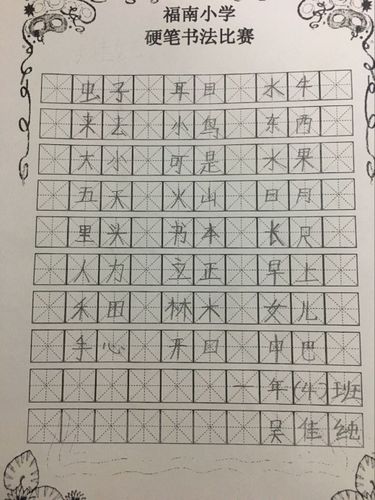 福南小学
硬笔书法比赛
虫子 耳目 水牛
来去 小鸟 东西
大小 可是 水果
五天 火山 日月
里头 书本 长尺
人力 立正 早上
禾田 林木 女儿
手心 开口 中巴
一年(4)班
吴佳纯